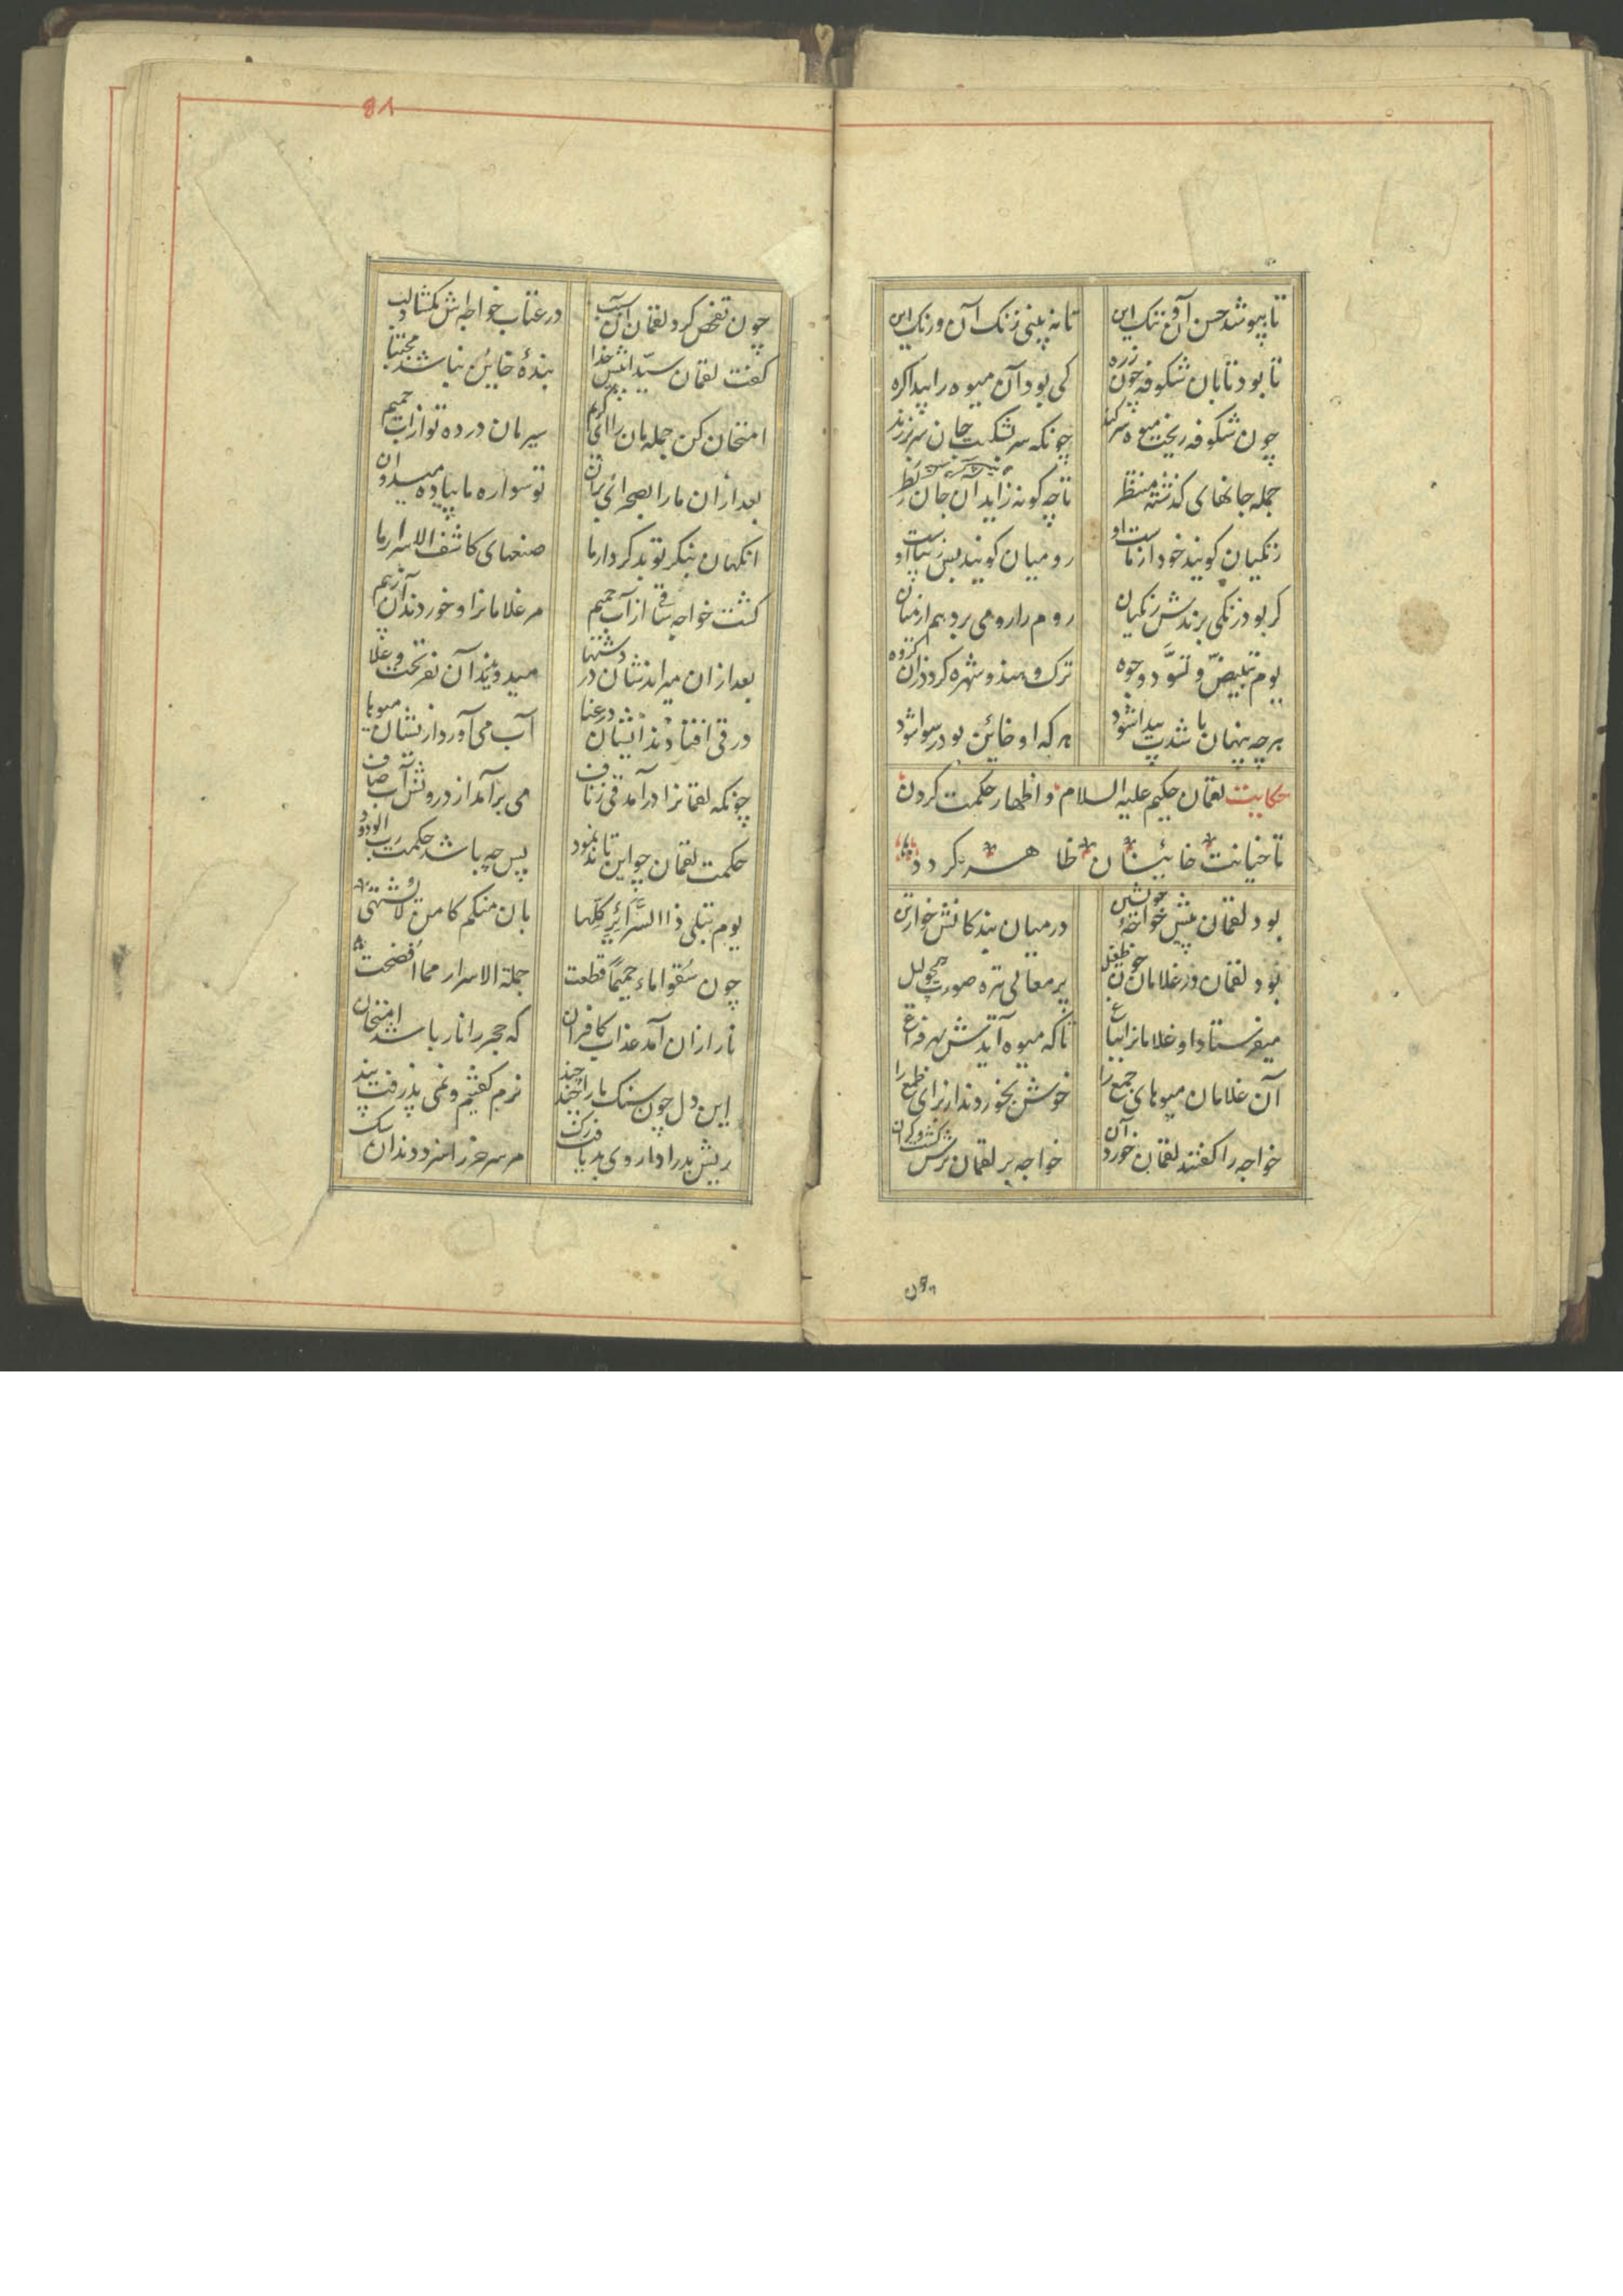 تا بپوشد حسن آن و ننک این
تا نه بینی زنک آن و رنک این
تا بود تابان شکوفه چون زره
کی بود آن میوه را پیدا کره
چون شکوفه ریخت میوه سر کند
چونکه سر شکست جان سر برزند
جمله جانهای کذشته منتظر
تا چه کونه زاید آن جان بطر
زنکیان کویند خود از ماست او
رومیان کویند بس زیباست او
کر بود زنکی برندش زنکیان
روم را رومی برد هم از میان
یوم تبیضّ و تسوَّد وجوه
ترک و هندو شهره کردد زان کروه
هرچه پنهان باشد پیدا شود
هر که او خائن بود رسوا شود
حکایت لقمان حکیم علیه السلام و اظهار حکمت کردن
تا خیانت خائینان ظاهر کردد
بود لقمان پیش خواجهٔ خویشتن
در میان بندکانش خوارتن
بود لقمان در غلامان چون طفیل
پر معانی تیره صورت همچو لیل
میفرستاد او غلامانرا بباغ
تا که میوه آیدش بهر فراغ
آن غلامان میوهای جمع را
خوش بخوردند از برای طمع را
خواجه را کفتند لقمان خورد آن
خواجه بر لقمان ترش کشت و کران
چون تفحص کرد لقمان از سبب
در عتاب خواجه اش بکشاد لب
کفت لقمان سیّدا پیش خدا
بندهٔ خاین نباشد مجتبا
امتحان کن جمله مان را ای کریم
سیرمان درده تو از آب حمیم
بعد ازان ما را بصحرائی بران
تو سواره ما پیاده میدوان
انکهان بنکر تو بدکردار ما
صنعهای کاشف الاسرار ما
کشت خواجه ساقی از آب حمیم
مر غلامانرا و خوردند آن زبیم
بعد ازان میراندشان در دشتها
میدویدند آن نفر تحت و علا
در قی افتادند ایشان در عنا
آب می آورد ازیشان میوها
چونکه لقمانرا درآمد قی زناف
می برآمد از درونش آب صاف
حکمت لقمان چو این تاند نمود
پس چه باشد حکمت رب الودود
یوم تبلی ذا السَّرائِرِ کلّها
بان منکم کامن لا یشتهی
چون سُقوا ماء حمیماً قطعت
جملة الاسرار مما افضحت
نار ازان آمد عذاب کافران
که حجر را نار باشد امتحان
این دل چون سنک ما را چند چند
نرم کفتیم و نمی پذرفت پند
ریش بد را داروی بد یافت رک
مر سر خر را سزد دندان سک